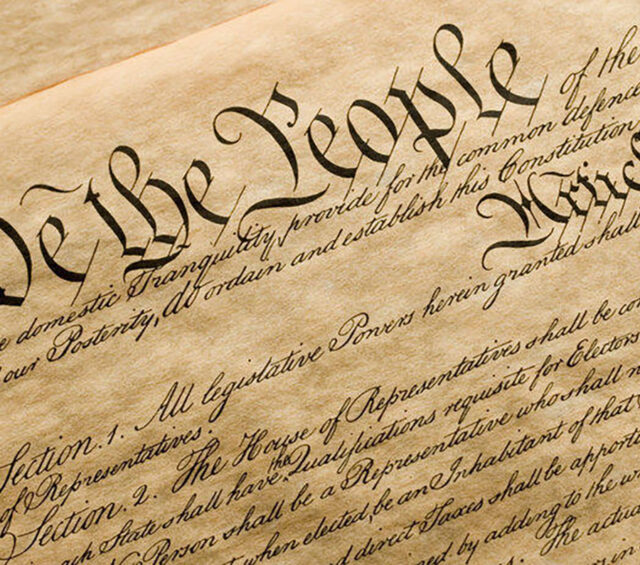 We the People of the
domestic Tranquility, provide for the common defence
our Posterity, do ordain and establish this Constitution
Section. 1. All legislative Powers herein granted shall
of Representatives.
Section. 2. The House of Representatives shall be
State shall have the Qualifications requisite for Electors
Person shall be a Representative who shall
when elected, be an Inhabitant of that
direct Taxes shall be
by adding to the
The